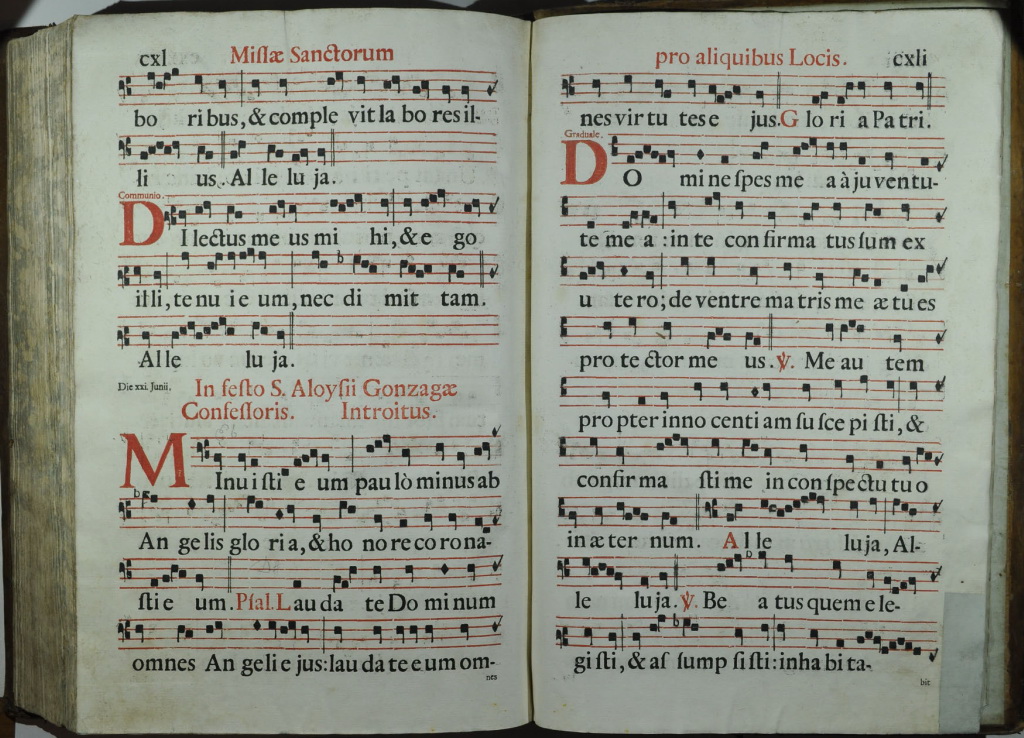 cxl Missæ Sanctorum
bo ri bus, & comple vit la bo res il-
li us. Al le lu ja.
Communio.
D I lectus me us mi hi, & e go
illi, te nu i e um, nec di mit tam.
Al le lu ja.
Die xxi. Junii. In festo S. Aloysii Gonzagæ
Confessoris. Introitus.
M Inu i sti e um pau lò minus ab
An ge lis glo ri a, & ho no re co ro na-
sti e um. Psal. Lau da te Do mi num
omnes An ge li e jus: lau da te e um om-
nes
pro aliquibus Locis. cxli
nes vir tu tes e jus. G lo ri a Pa tri.
Graduale.
D O mi ne spes me a à ju ventu-
te me a: in te con fir ma tus sum ex
u te ro; de ventre ma tris me æ tu es
pro te ctor me us. ℣. Me au tem
pro pter inno centi am su sce pi sti, &
confir ma sti me in con spe ctu tu o
in æ ter num. A l le lu ja, Al-
le lu ja. ℣. Be a tus quem e le-
gi sti, & as sump si sti: inha bi ta-
bit